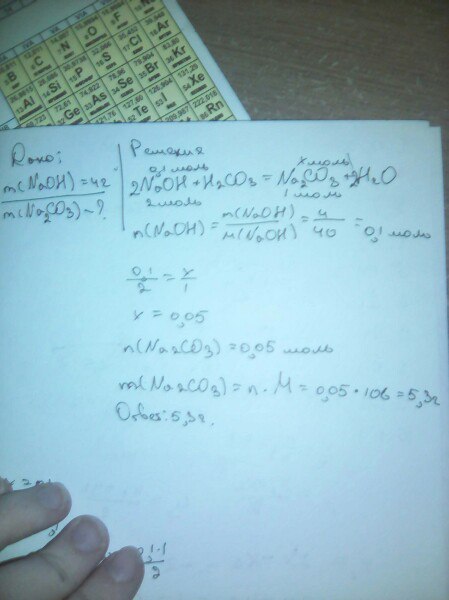 B C N O F
Al Si P S Cl Ar
Ge As Se Br Kr
Te Xe
Rn
Дано:
m(NaOH) = 4г
m(Na₂CO₃) - ?
Решение
0,1 моль x моль
2NaOH + H₂CO₃ = Na₂CO₃ + 2H₂O
2 моль 1 моль
n(NaOH) = m(NaOH)/M(NaOH) = 4/40 = 0,1 моль
0,1/2 = x/1
x = 0,05
n(Na₂CO₃) = 0,05 моль
m(Na₂CO₃) = n · M = 0,05 · 106 = 5,3г
Ответ: 5,3г.
0,1·1/2